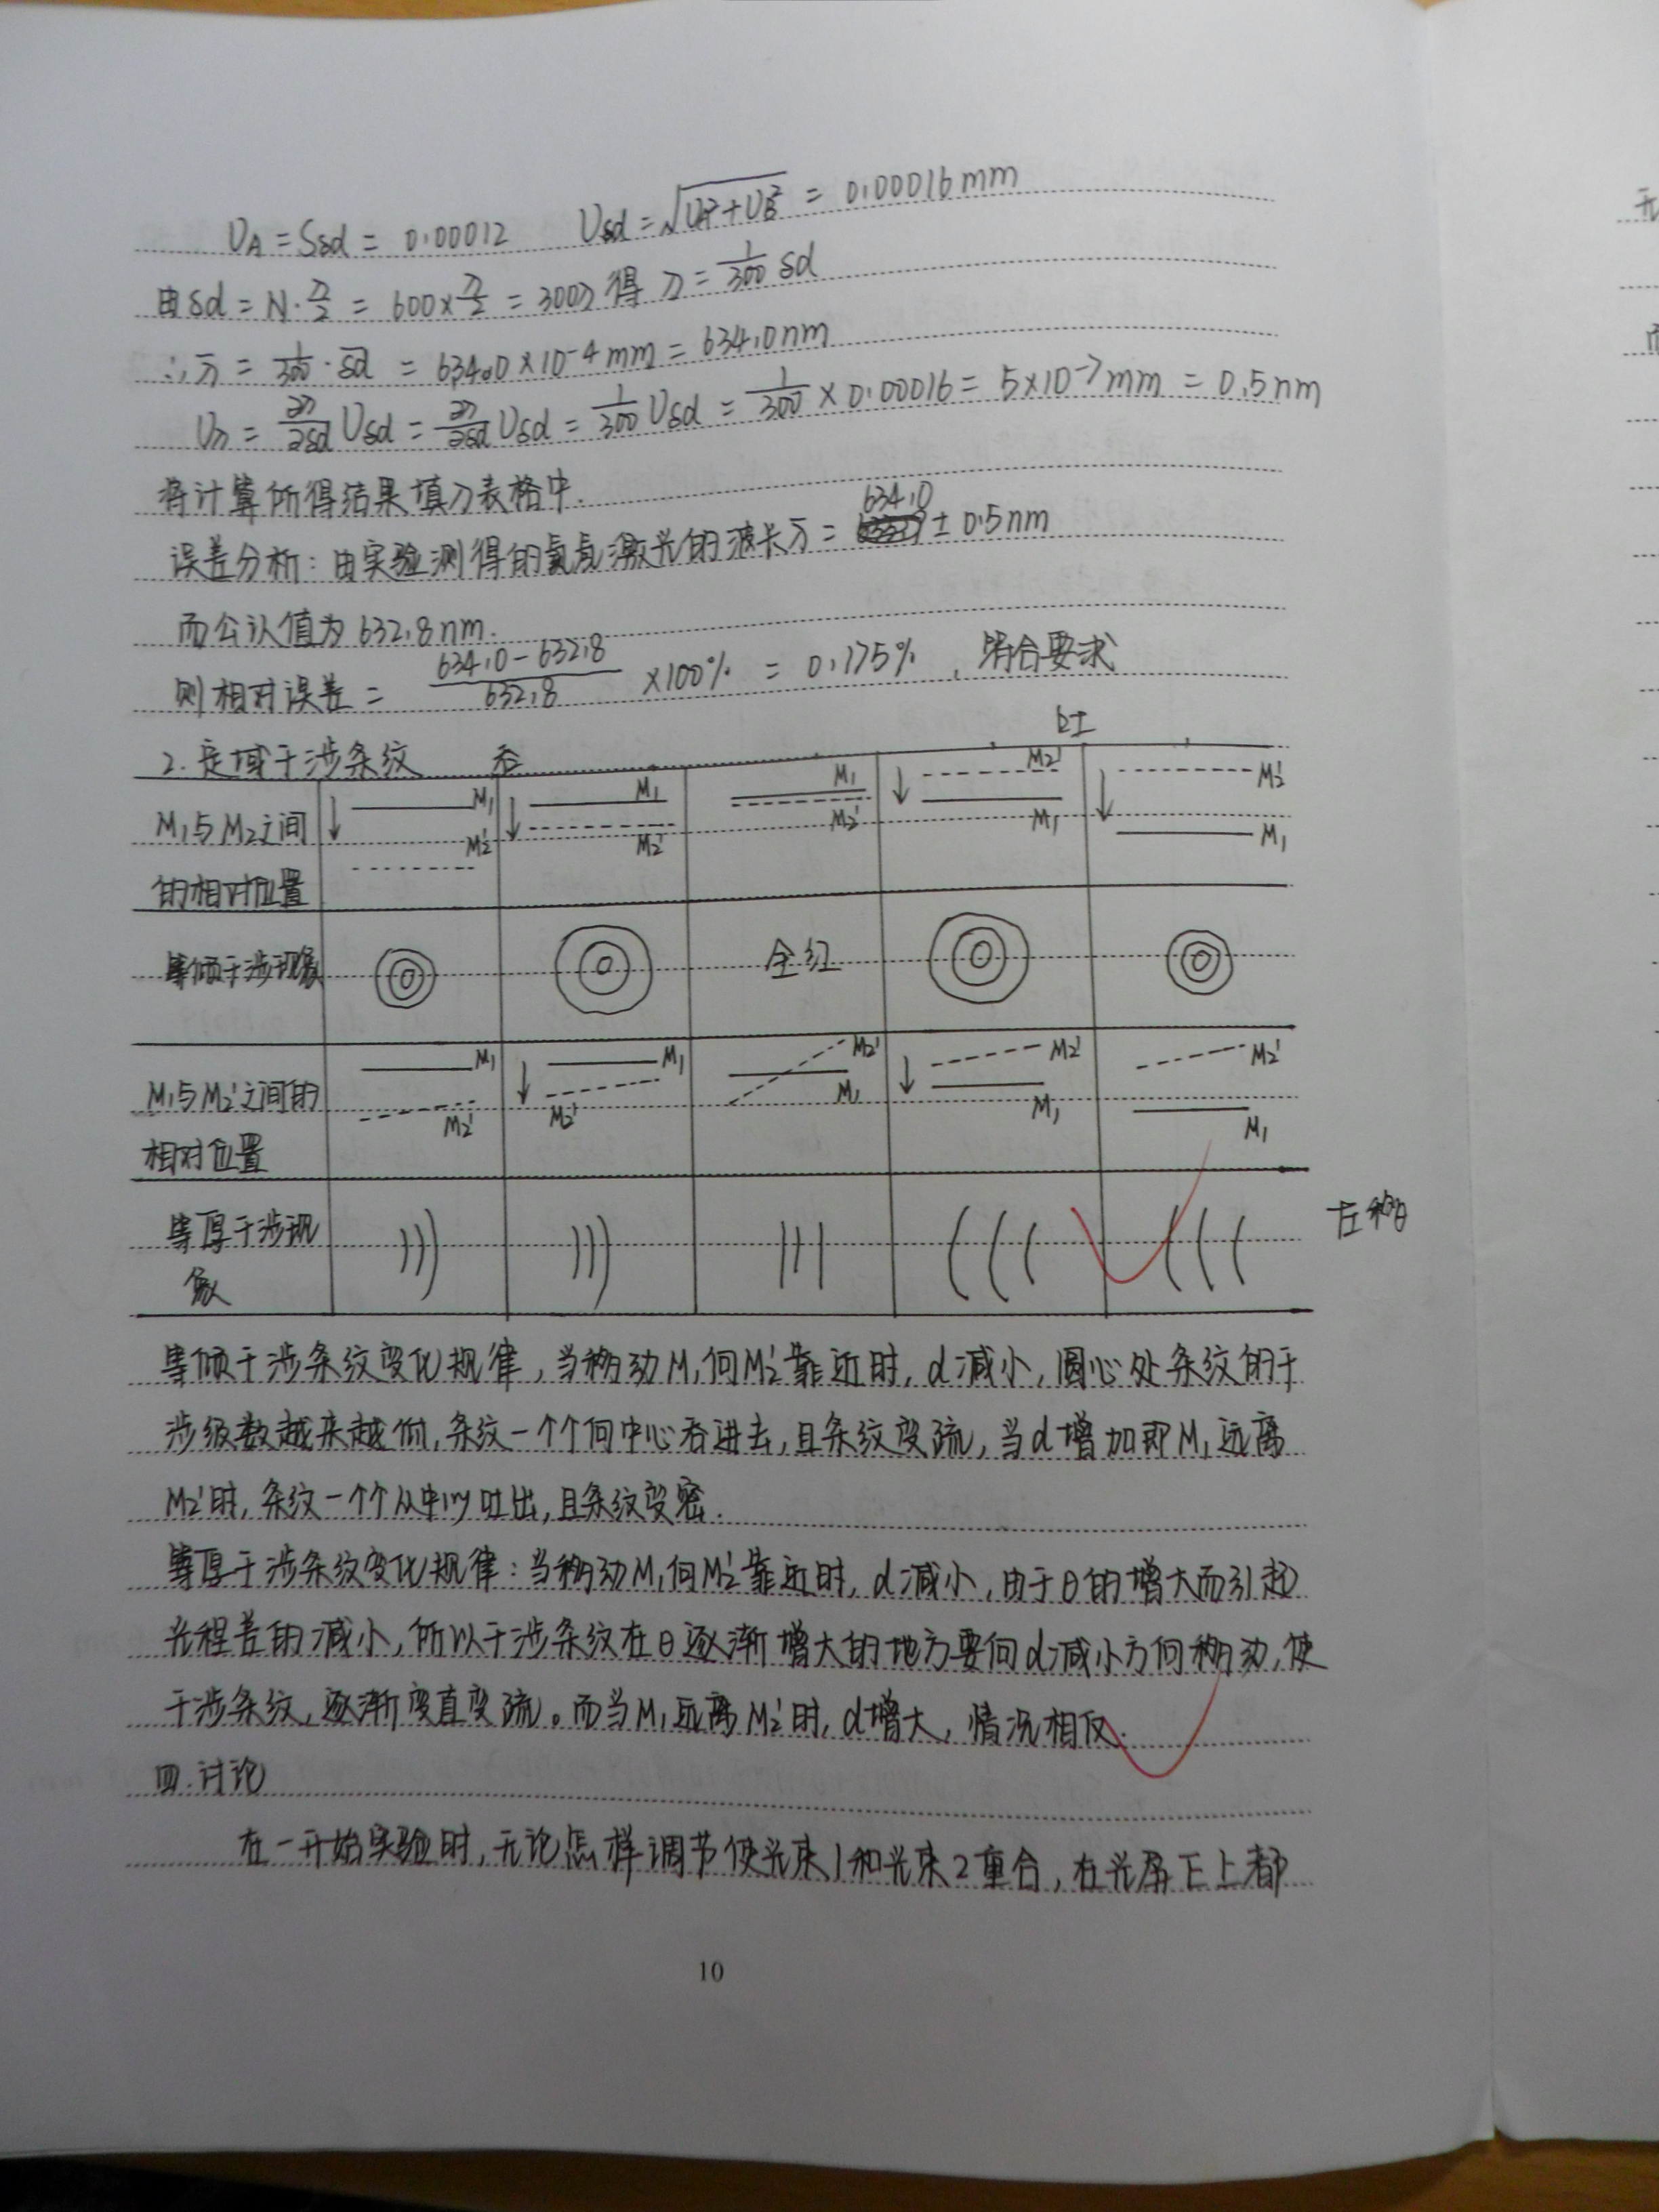 U_A = S_δd = 0.00012 U_δd = √(U_A² + U_B²) = 0.00016mm
由δd = N·λ/2 = 600×λ/2 = 300λ 得 λ = 1/300 δd
∴ λ̄ = 1/300 · δd̄ = 634.0×10⁻⁴mm = 634.0nm
U_λ = ∂λ/∂δd U_δd = ∂λ/∂δd U_δd = 1/300 U_δd = 1/300 × 0.00016 = 5×10⁻⁷mm = 0.5nm
将计算所得结果填入表格中.
误差分析: 由实验测得的氦氖激光的波长λ̄ = 634.0 ± 0.5nm
而公认值为632.8nm.
则相对误差 = (634.0-632.8)/632.8 ×100% = 0.175% , 符合要求
2. 定域干涉条纹 吞 吐
M₁与M₂之间 M₁ M₁ M₁ M₂′ M₂′
M₂′ M₂′ M₂′ M₁ M₁
的相对位置
等倾干涉现象 全红
M₁ M₁ M₂′ M₂′ M₂′
M₁与M₂′之间的 M₂′ M₂′ M₁ M₁ M₁
相对位置
等厚干涉现 左移θ
象
等倾干涉条纹变化规律, 当移动M₁向M₂′靠近时, d减小, 圆心处条纹的干
涉级数越来越低, 条纹一个个向中心吞进去, 且条纹变疏, 当d增加即M₁远离
M₂′时, 条纹一个个从中心吐出, 且条纹变密.
等厚干涉条纹变化规律: 当移动M₁向M₂′靠近时, d减小, 由于θ的增大而引起
光程差的减小, 所以干涉条纹在θ逐渐增大的地方要向d减小方向移动, 使
干涉条纹, 逐渐变直变疏。而当M₁远离M₂′时, d增大, 情况相反.
四. 讨论
在一开始实验时, 无论怎样调节使光束1和光束2重合, 在光屏E上都
10
无